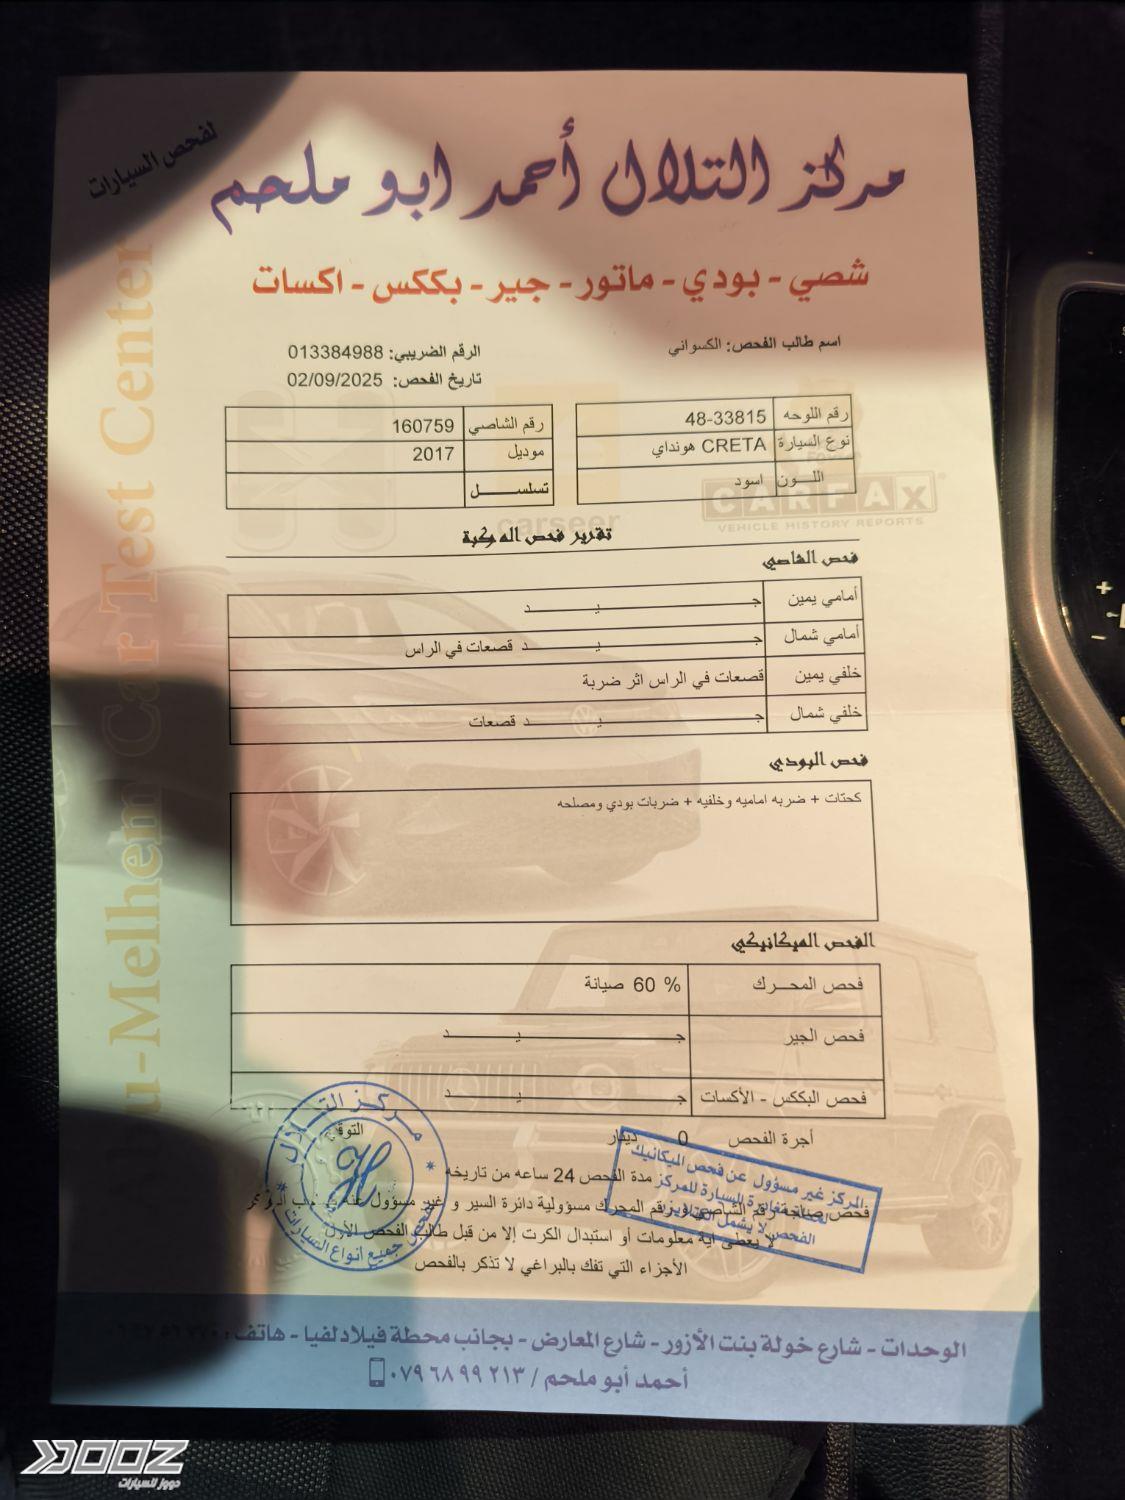 لفحص السيارات
مركز التلال أحمد ابو ملحم
شصي - بودي - ماتور - جير - بككس - اكسات
اسم طالب الفحص: الكسواني
الرقم الضريبي: 013384988
تاريخ الفحص: 02/09/2025
رقم اللوحه 48-33815
نوع السيارة CRETA هونداي
اللـــون اسود
رقم الشاصي 160759
موديل 2017
تسلســـــل
carseer
CARFAX
VEHICLE HISTORY REPORTS
تقرير فحص المركبة
فحص الشاصي
أمامي يمين جـــــيـــــد
أمامي شمال جـــــيـــــد قصعات في الراس
خلفي يمين قصعات في الراس اثر ضربة
خلفي شمال جـــــيـــــد قصعات
فحص البودي
كحتات + ضربه اماميه وخلفيه + ضربات بودي ومصلحه
الفحص الميكانيكي
فحص المحـــرك 60 % صيانة
فحص الجير جـــــيـــــد
فحص البككس - الأكسات جـــــيـــــد
أجرة الفحص 0 دينار
مدة الفحص 24 ساعه من تاريخه
فحص صلاحية رقم الشاصي ورقم المحرك مسؤولية دائرة السير و غير مسؤول عنه
لا يعطى اية معلومات أو استبدال الكرت إلا من قبل طالب الفحص الأول
الأجزاء التي تفك بالبراغي لا تذكر بالفحص
المركز غير مسؤول عن فحص الميكانيك
لحظة مغادرة السيارة للمركز
الفحص لا يشمل
مركز التلال
لفحص جميع انواع السيارات
u-Melhem Car Test Center
الوحدات - شارع خولة بنت الأزور - شارع المعارض - بجانب محطة فيلادلفيا - هاتف:
أحمد أبو ملحم / ٠٧٩٦٨٩٩٢١٣
DOOZ
دووز للسيارات